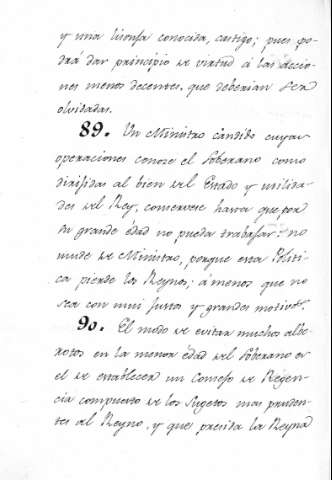 y una lisonja conocida, castigo; pues po-
drá dar principio de virtud á las accio-
nes menos decentes, que deberian ser
olvidadas.
89. Un Ministro cándido cuyas
operaciones conoce el Soberano como
dirigidas al bien del Estado y utilida-
des del Rey, conservese hasta que por
su grande edad no pueda trabajar: no
mude de Ministro, porque esta Políti-
ca pierde los Reynos; á menos que no
sea con mui justos y grandes motivos.
90. El modo de evitar muchos albo-
rotos en la menor edad del Soberano es
el de establecer un Consejo de Regen-
cia compuesto de los Sugetos mas pruden-
tes al Reyno, y que presida la Reyna